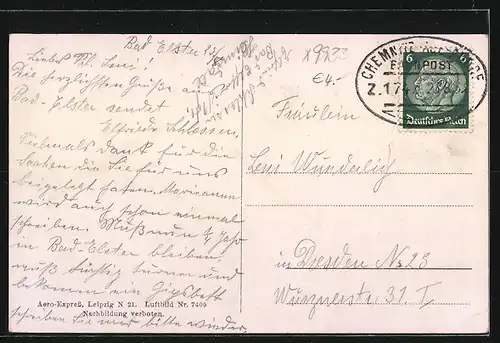 Bad Elster
Liebes Frl. Leni!
Die herzlichsten Grüße aus
Bad-Elster sendet
Elfriede Schlosser.
Vielmals Dank für die
Sachen die Sie für uns
beigelegt haben. Marianne
wird auch schon einmal
schreiben. Muß nun 1/4 Jahr
in Bad-Elster bleiben
muß tüchtig turnen und
bekomme ein Gipsbett
schreiben Sie mir bitte wieder
Aero-Expreß, Leipzig N 21. Luftbild Nr. 7409
Nachbildung verboten.
x9833
€4.-
CHEMNITZ
BAHNPOST
Z.174
6 6
Deutsches Reich
Fräulein
Leni Wunderlich
in Dresden N. 23
Wurznerstr. 31 I